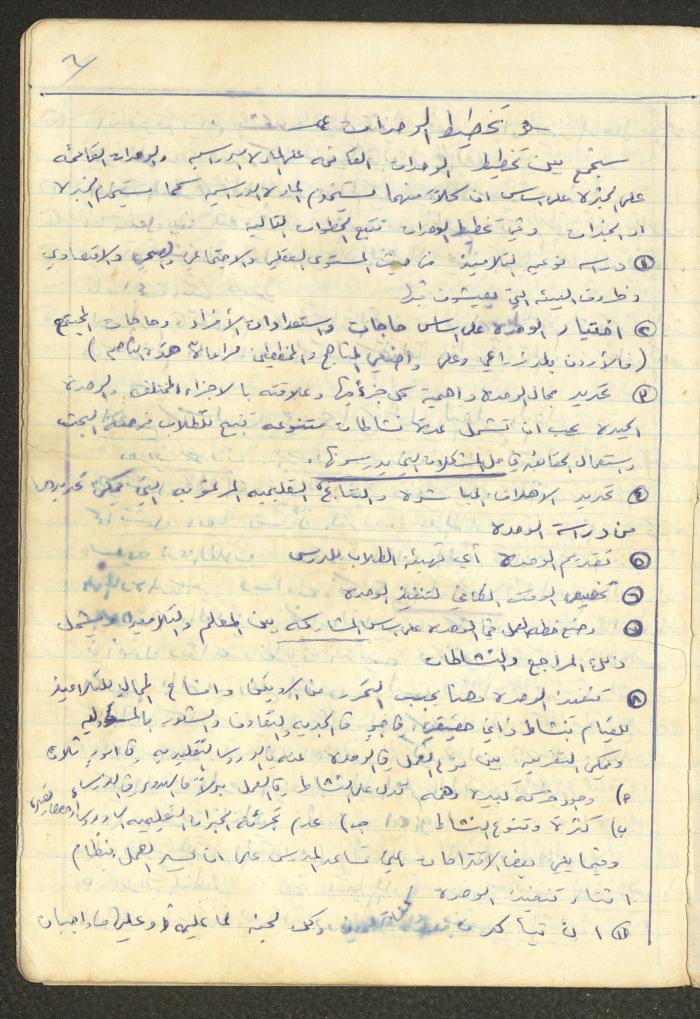 ٦
تخطيط الوحدات
سنجمع بين تخطيط الوحدات القائمة على المادة الدراسية والوحدات القائمة
على الخبرة على اساس ان كلاً منهما تستخدم المادة الدراسية كما تستخدم الخبرة
او الخبرات وفي تخطيط الوحدات تتبع الخطوات التالية
١ دراسة نوعية التلاميذ من حيث المستوى العقلي والاجتماعي والصحي والاقتصادي
وظروف البيئة التي يعيشون فيها
٢ اختيار الوحدة على اساس حاجات واستعدادات الأفراد وحاجات المجتمع
(فالأردن بلد زراعي وعلى واضعي المناهج والمخططين مراعاة هذه الناحية)
٣ تحديد مجال الوحدة واهمية كل جزء منها وعلاقته بالاجزاء المختلفة والوحدة
الجيدة يجب ان تشمل عدة نشاطات متنوعة تتيح للطلاب فرصة البحث
واستعمال الحقائق في حل المشكلات التي يدرسونها.
٤ تحديد الاهداف المباشرة والنتائج التعليمية المرغوبة التي يمكن تحديدها
من دراسة الوحدة
٥ تقديم الوحدة أي تهيئة الطلاب للدرس
٦ تخصيص الوقت الكافي لتنفيذ الوحدة
٧ وضع خطة العمل في الوحدة على اساس المشاركة بين المعلم والتلاميذ ويشمل
ذلك المراجع والنشاطات
٨ تنفيذ الوحدة وهنا يجب التحرر من الروتين وافساح المجال للتلاميذ
للقيام بنشاط ذاتي حقيقي في جو من الجدية والتعاون والشعور بالمسؤولية
ويمكن التفريق بين نوع العمل في الوحدة عنه في الدروس التقليدية في امور ثلاث
أ) وجود حركة كبيرة وهمة تدل على النشاط في العمل بدلاً من الهدوء في الدرس
ب) كثرة وتنوع النشاط جـ) عدم تجزئة الخبرات التعليمية الى دروس
وفيما يلي بعض الاقتراحات التي تساعد المدرس على ان يسير العمل بنظام
اثناء تنفيذ الوحدة
١ ان يتأكد من وكل لجنة لما عليها من واجبات